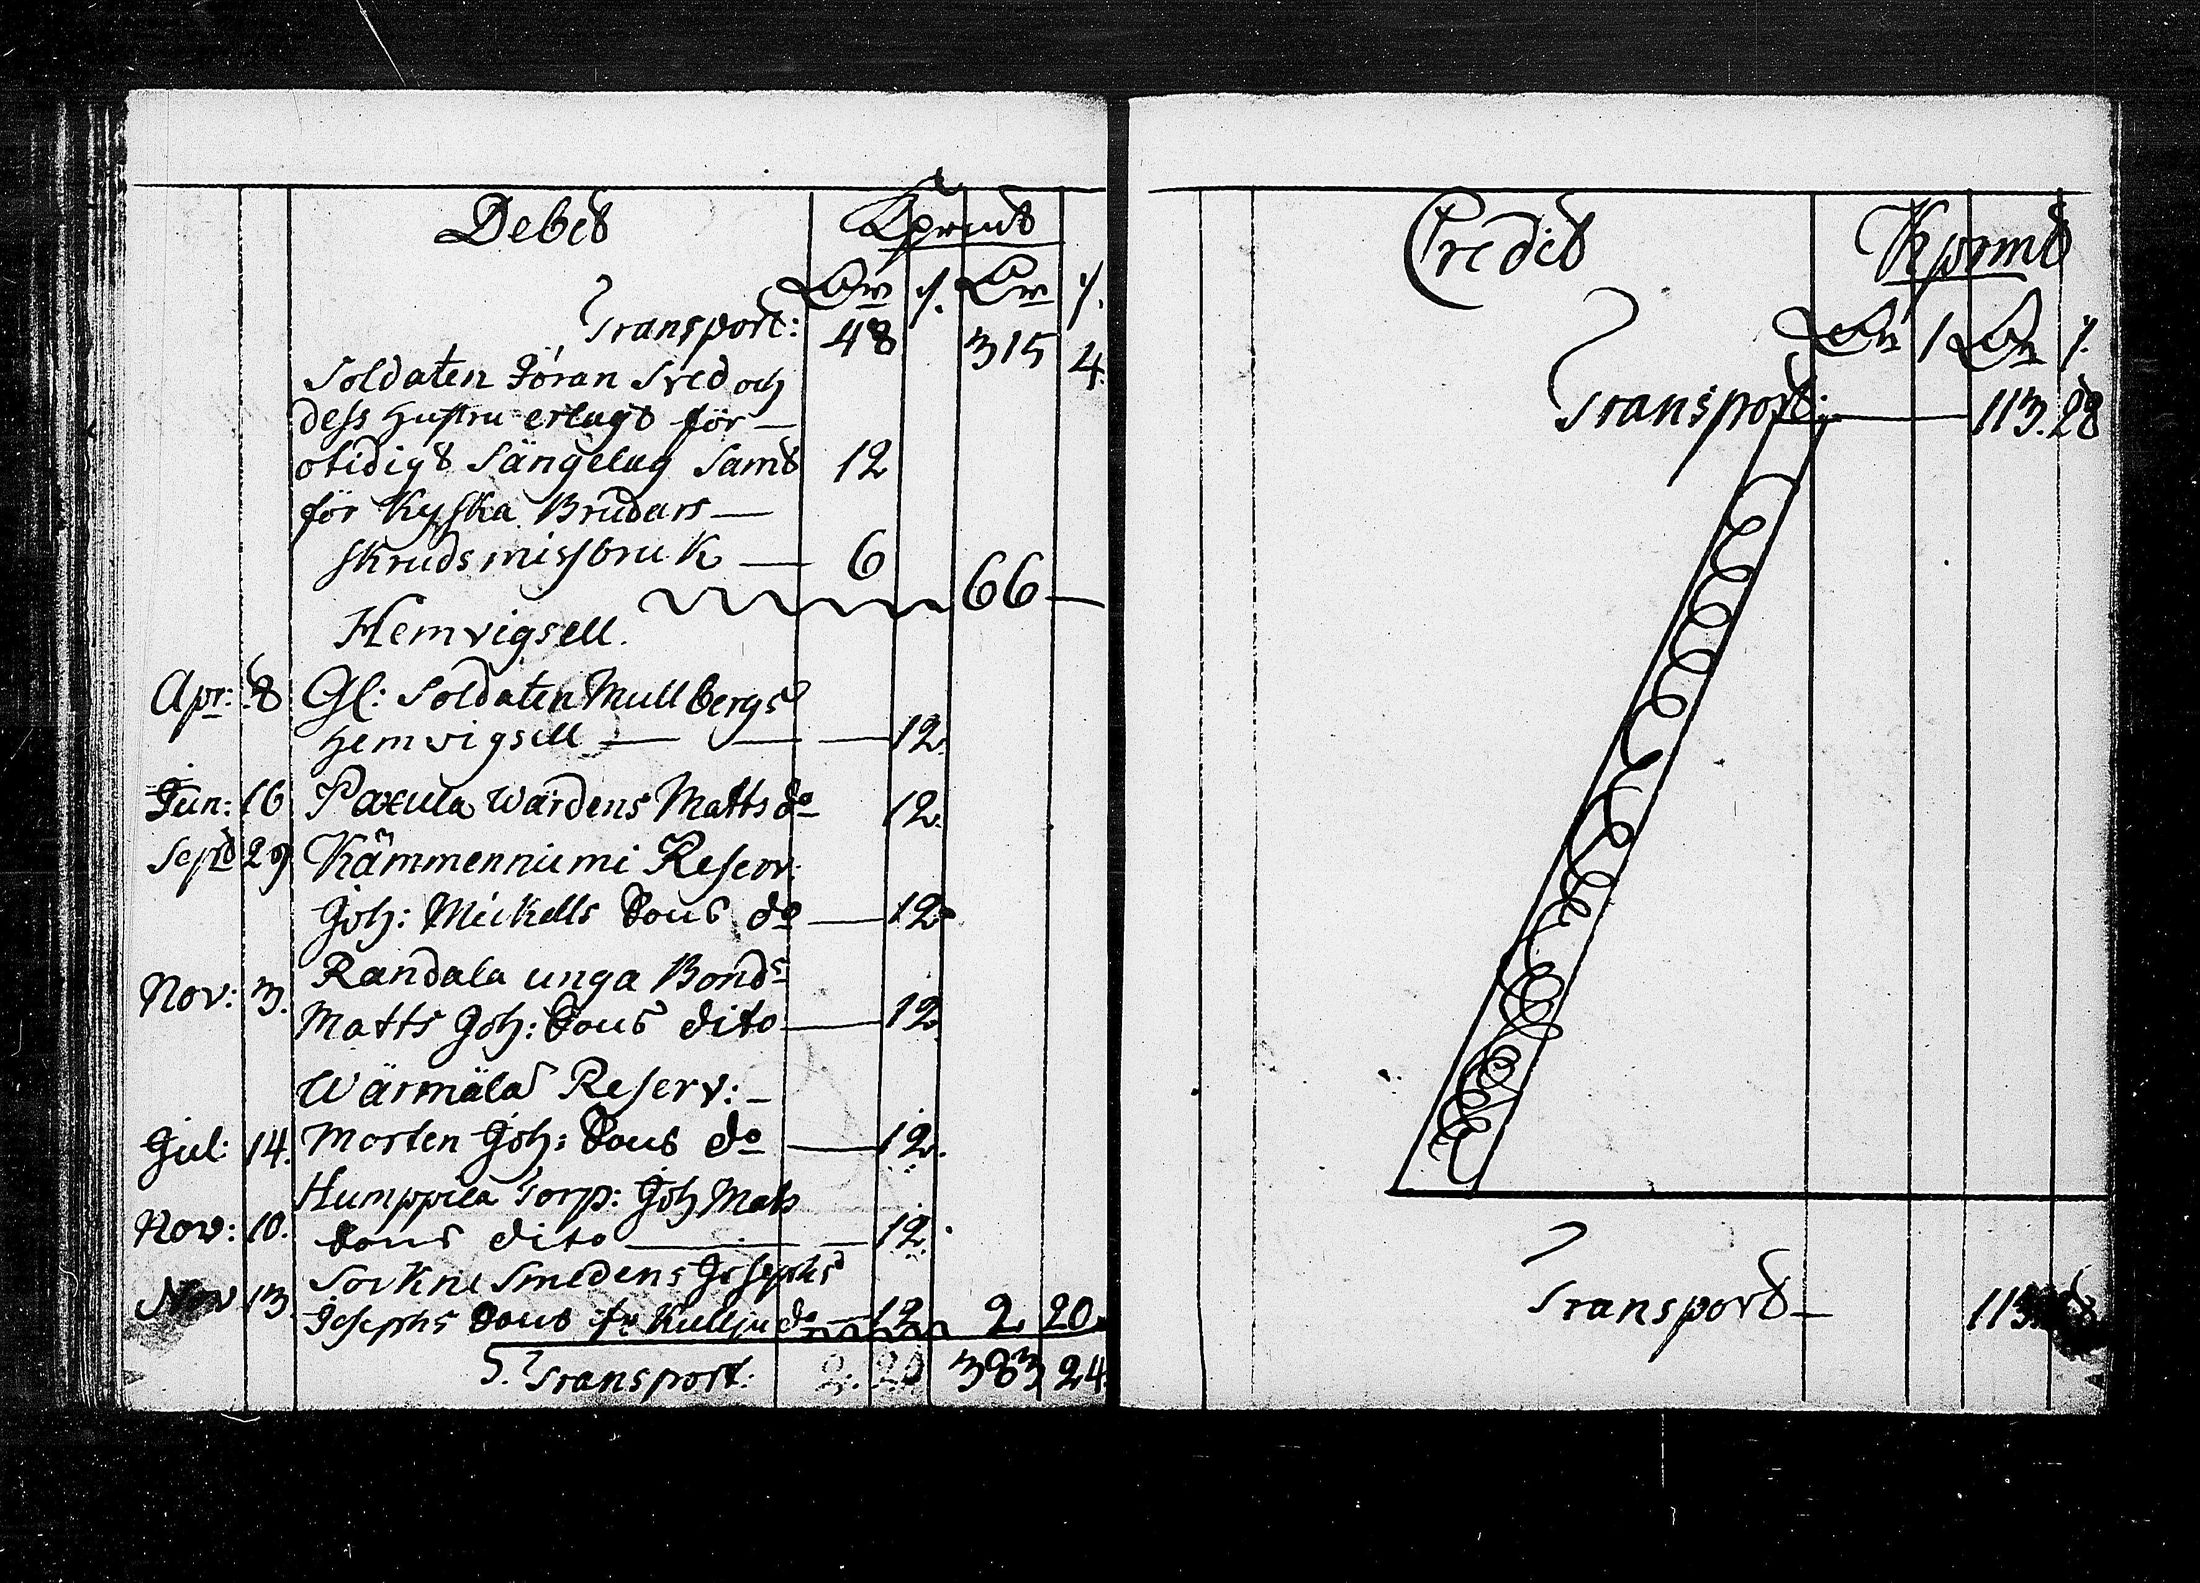 Debet Kpmt
Dlr /. Dlr /.
Transport: 48 315 4.
Soldaten Jöran Sved och
dess hustru erlagt för —
otidigt Sängelag Samt 12
för Kyska Brudars —
skruds missbruk — 6
66 —
Hemvigsell.
Apr: 8 Gl: Soldaten Mullbergs
hemvigsell — — — 12.
Jun: 16 Paxula Wärdens Matts do 12.
Sept 29 Kämmenniemi Reserv:
Joh: Mickells Sons do — 12.
Randala unga Bonds
Nov: 3. Matts Joh: Sons dito — 12
Wärmälä Reserv: —
Jul: 14. Morten Joh: Sons do — 12.
Humppila Torp: Joh Mats
Nov: 10. Sons dito — — 12.
Sorkne Smedens Josephs
Nov 13. Josephs Sons fr Kulju do — 12 2 20.
S. Transport: 2. 20 383 24
Credit Kpmt
Dlr / Dlr /.
Transport: — 113. 28
Transport — 113